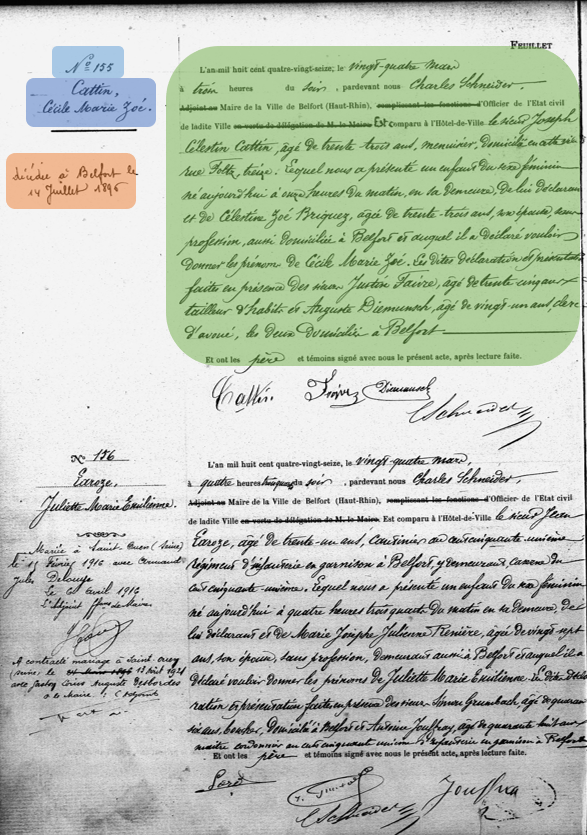 FEUILLET
N° 155
Cattin,
Cécile Marie Zoé.
décédée à Belfort le
14 Juillet 1896
L'an mil huit cent quatre-vingt-seize, le vingt-quatre mars
à trois heures du soir, pardevant nous Charles Schneider,
Adjoint au Maire de la Ville de Belfort (Haut-Rhin), remplissant les fonctions d'Officier de l'Etat civil
de ladite Ville en vertu de délégation de M. le Maire Est comparu à l'Hôtel-de-Ville le sieur Joseph
Célestin Cattin, âgé de trente trois ans, menuisier, domicilié en cette ville
rue Foltz, treize. Lequel nous a présenté un enfant du sexe féminin
né aujourd'hui à onze heures du matin, en sa demeure, de lui déclarant
et de Célestine Zoé Briquez, âgée de trente-trois ans, son épouse, sans
profession, aussi domiciliée à Belfort et auquel il a déclaré vouloir
donner les prénom de Cécile Marie Zoé. Les dites déclaration et présentation
faite en présence des sieurs Justin Faivre, âgé de trente cinq ans
tailleur d'habits et Auguste Diemunsch, âgé de vingt-un ans, clerc
d'avoué, les deux domiciliés à Belfort
Et ont les père et témoins signé avec nous le présent acte, après lecture faite.
Cattin Faivre Diemunsch
Schneider
N° 156
Earoze,
Juliette Marie Emilienne.
Mariée à Saint Ouen (Seine)
le 15 février 1916 avec Armand
Jules Delouye
Le 6 avril 1916
A contracté mariage à Saint-Ouen
(Seine) le 13 août 1921
avec Auguste Desbordes
L'an mil huit cent quatre-vingt-seize, le vingt-quatre mars,
à quatre heures du soir, pardevant nous Charles Schneider,
Adjoint au Maire de la Ville de Belfort (Haut-Rhin), remplissant les fonctions d'Officier de l'Etat civil
de ladite Ville en vertu de délégation de M. le Maire. Est comparu à l'Hôtel-de-Ville le sieur Jean
Earoze, âgé de trente-un ans, cantinier au cent cinquante unième
régiment d'infanterie en garnison à Belfort, y demeurant, caserne du
cent cinquante-unième. Lequel nous a présenté un enfant du sexe féminin
né aujourd'hui à quatre heures trois quarts du matin en sa demeure, de
lui déclarant et de Marie Josèphe Julienne Renière, âgée de vingt-sept
ans, son épouse, sans profession, demeurant aussi à Belfort et auquel il a
déclaré vouloir donner les prénoms de Juliette Marie Emilienne. Les dites décla
ration et présentation faites en présence des sieurs Simon Grumbach, âgé de quarante
six ans, domicilié à Belfort et Antoine Jouffray, âgé de quarante huit ans
maître cordonnier au cent cinquante unième d'infanterie en garnison à Belfort
Et ont les père et témoins signé avec nous le présent acte, après lecture faite.
Schneider Jouffray